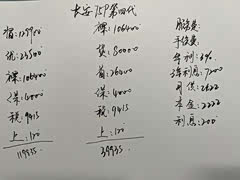 长安75P第四代
指:129900
优:23500
裸:106400
保:4000
税:9415
上:120
119935
裸:106400
贷:80000
首:26400
保:4000
税:9415
上:120
39935
手续费:
年利:3%
3年利息:7200
月供:2422
本金:2222
利息:200